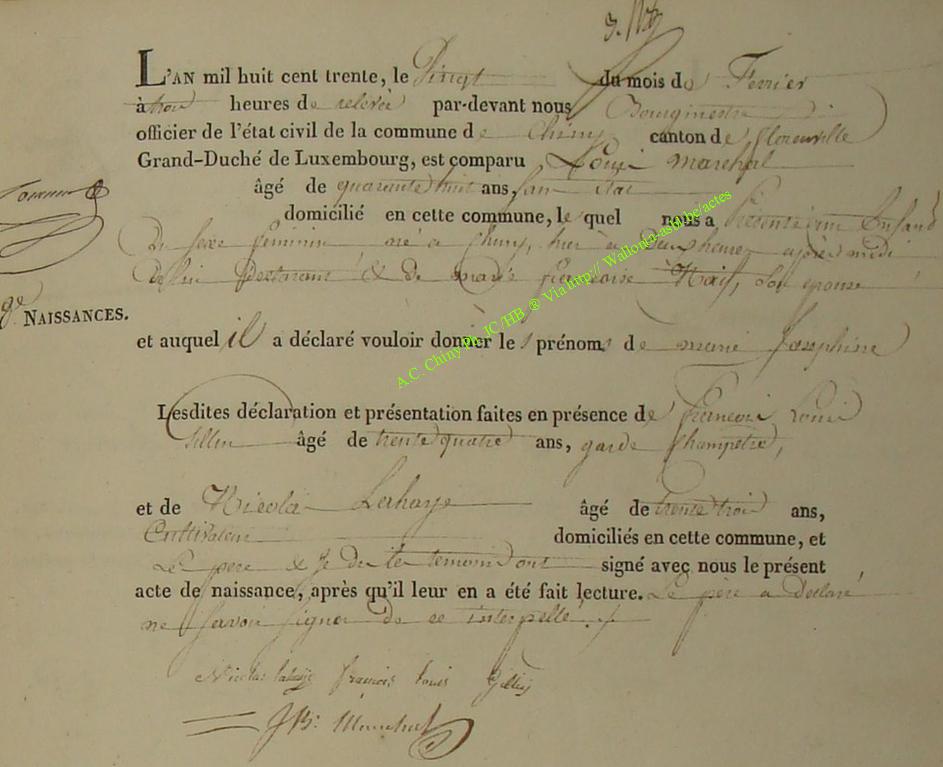 L'AN mil huit cent trente, le Vingt du mois de Fevrier
à trois heures de relevée par-devant nous Bourgmestre
officier de l'état civil de la commune de Chiny canton de florenville
Grand-Duché de Luxembourg, est comparu Louis Marechal
âgé de quarante huit ans, San Etat
domicilié en cette commune, le quel nous a presenté un Enfant
Du sexe feminin né a Chiny, hier à Deux heures après midi
De lui Declarant & de marie francoise Son epouse
NAISSANCES.
et auquel il a déclaré vouloir donner les prénoms de marie Josephine
Lesdites déclaration et présentation faites en présence de francois Louis
Gillin âgé de trente quatre ans, garde Champetre,
et de Nicolas Lahaye âgé de trente trois ans,
Cultivateur domiciliés en cette commune, et
Le pere & temoins ont signé avec nous le présent
acte de naissance, après qu'il leur en a été fait lecture. Le père a Déclaré
ne savoir signer de ce interpellé ./.
Nicolas lahaye françois louis Gillin
JB: Marechal
A.C. Chiny Ph. JC/HB @ Via http://Wallonia-asbl.be/actes